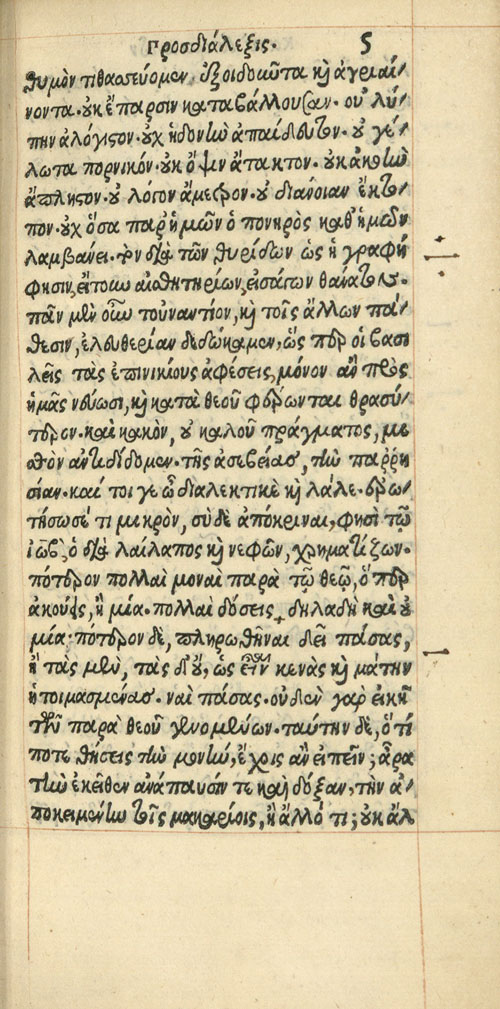 Προσδιάλεξις. 5
θυμὸν τιθασεύομεν ἐξοιδοῦντα καὶ ἀγριαί/
νοντα· οὐκ ἔπαρσιν καταβάλλουσαν· οὐ λύ/
πην ἀλόγιστον· οὐχ ἡδονὴν ἀπαίδευτον· οὐ γέ/
λωτα πορνικόν· οὐκ ὄψιν ἄτακτον· οὐκ ἀκοὴν
ἄπληστον· οὐ λόγον ἄμετρον· οὐ διάνοιαν ἔκτο/
πον· οὐχ ὅσα παρ' ἡμῶν ὁ πονηρὸς καθ' ἡμῶν
λαμβάνει· τὸν διὰ τῶν θυρίδων ὡς ἡ γραφή
φησιν, εἴτουν αἰσθητηρίων, εἰσάγων θάνατον.
πᾶν μὲν οὖν τοὐναντίον, καὶ τοῖς ἄλλων πά/
θεσιν, ἐλευθερίαν δεδώκαμεν, ὥσπερ οἱ βασι
λεῖς τὰς ἐπινικίους ἀφέσεις, μόνον ἂν πρὸς
ἡμᾶς νεύωσι, καὶ κατὰ θεοῦ φέρωνται θρασύ/
τερον· καὶ κακὸν, οὐ καλοῦ πράγματος, μι
σθὸν ἀντιδίδομεν· τῆς ἀσεβείας, τὴν παρρη
σίαν. καί τοι γε ὦ διαλεκτικὲ καὶ λάλε· ἐρω/
τήσω σέ τι μικρὸν, σὺ δὲ ἀπόκριναι, φησὶ τῷ
ἰὼβ, ὁ διὰ λαίλαπος καὶ νεφῶν, χρηματίζων.
πότερον πολλαὶ μοναὶ παρὰ τῷ θεῷ, ὅπερ
ἀκούεις, ἢ μία· πολλαὶ δώσεις δηλαδὴ καὶ οὐ
μία· πότερον δὲ, πληρωθῆναι δεῖ πάσας,
ἢ τὰς μὲν, τὰς δ' οὔ, ὡς εἶναι κενὰς καὶ μάτην
ἡτοιμασμένας. ναὶ πάσας. οὐδὲν γὰρ εἰκῆ
τῶν παρὰ θεοῦ γινομένων. ταύτην δὲ, ὅ τί
ποτε θήσεις τὴν μονὴν, ἔχοις ἂν εἰπεῖν; ἆρα
τὴν ἐκεῖθεν ἀνάπαυσίν τε καὶ δόξαν, τὴν ἀ/
ποκειμένην τοῖς μακαρίοις, ἢ ἄλλό τι; οὐκ ἄλ